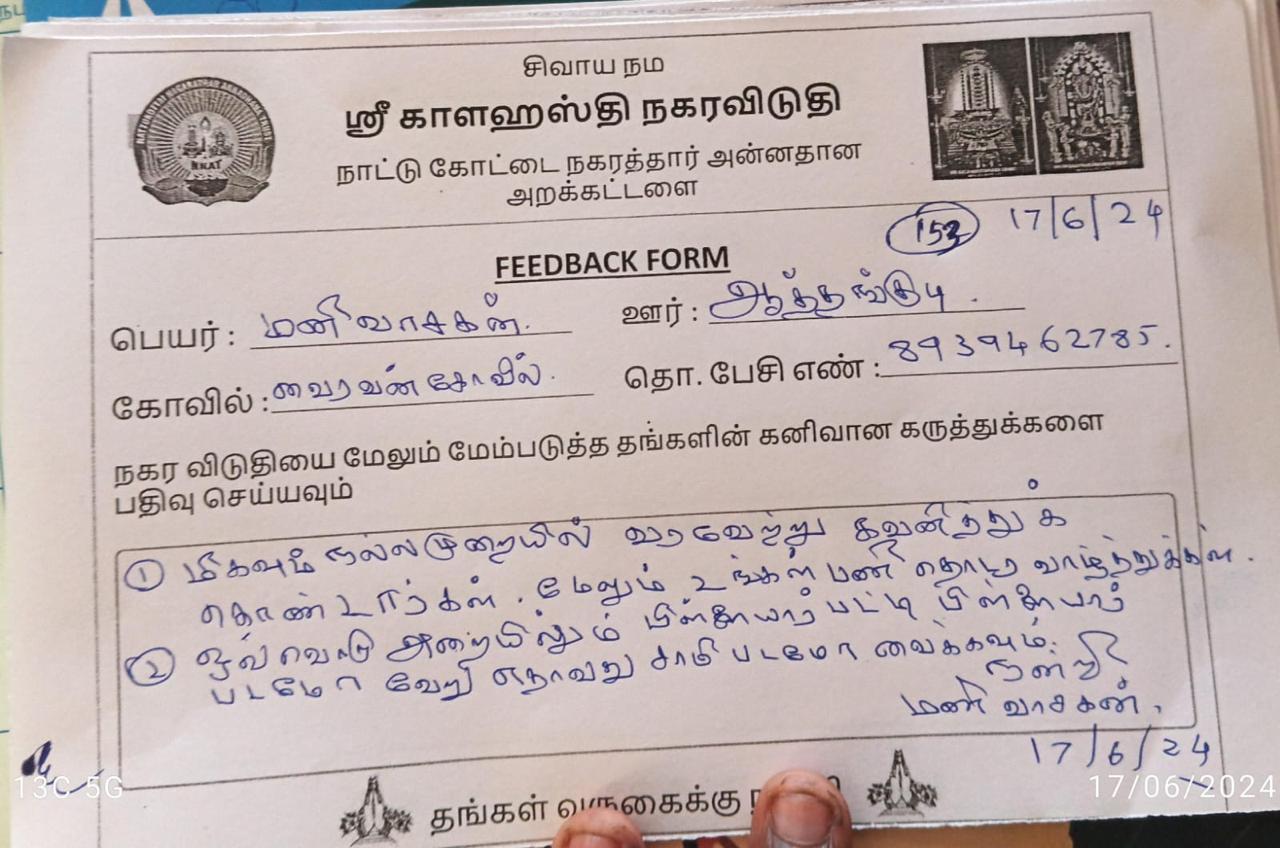 சிவாய நம
ஸ்ரீ காளஹஸ்தி நகரவிடுதி
நாட்டு கோட்டை நகரத்தார் அன்னதான
அறக்கட்டளை
153 17/6/24
FEEDBACK FORM
பெயர் : மணிவாசகன். ஊர் : ஆத்தங்குடி.
கோவில் : வைரவன்கோவில். தொ. பேசி எண் : 8939462785.
நகர விடுதியை மேலும் மேம்படுத்த தங்களின் கனிவான கருத்துக்களை
பதிவு செய்யவும்
① மிகவும் நல்லமுறையில் வரவேற்று கவனித்துக்
கொண்டார்கள். மேலும் உங்கள் பணி தொடர வாழ்த்துக்கள்.
② ஒவ்வொரு அறையிலும் பிள்ளையார்பட்டி பிள்ளையார்
படமோ வேறு எதாவது சாமி படமோ வைக்கவும்.
நன்றி
மணிவாசகன்.
17/6/24
தங்கள் வருகைக்கு
13C 5G
17/06/2024